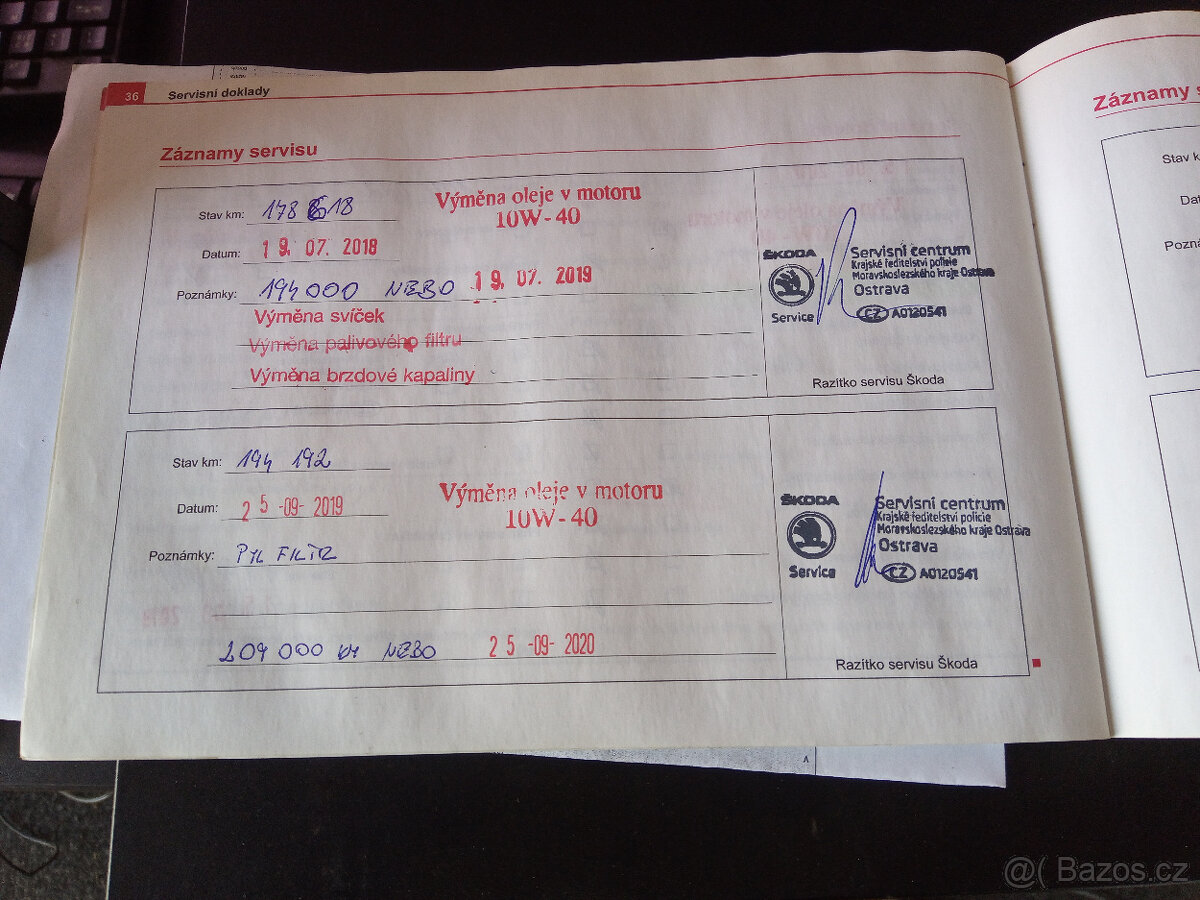 36 Servisní doklady
Záznamy servisu
Stav km: 178 618
Výměna oleje v motoru
10W-40
Datum: 19. 07. 2018
Poznámky: 194000 NEBO 19. 07. 2019
Výměna svíček
Výměna palivového filtru
Výměna brzdové kapaliny
ŠKODA
Service
Servisní centrum
Krajské ředitelství policie
Moravskoslezského kraje Ostrava
Ostrava
CZ A0120541
Razítko servisu Škoda
Stav km: 194 192
Datum: 25 -09- 2019
Výměna oleje v motoru
10W-40
Poznámky: PYL FILTR
209 000 km NEBO 25 -09- 2020
ŠKODA
Service
Servisní centrum
Krajské ředitelství policie
Moravskoslezského kraje Ostrava
Ostrava
CZ A0120541
Razítko servisu Škoda
Záznamy s
Stav k
Dat
Pozná
@( Bazos.cz